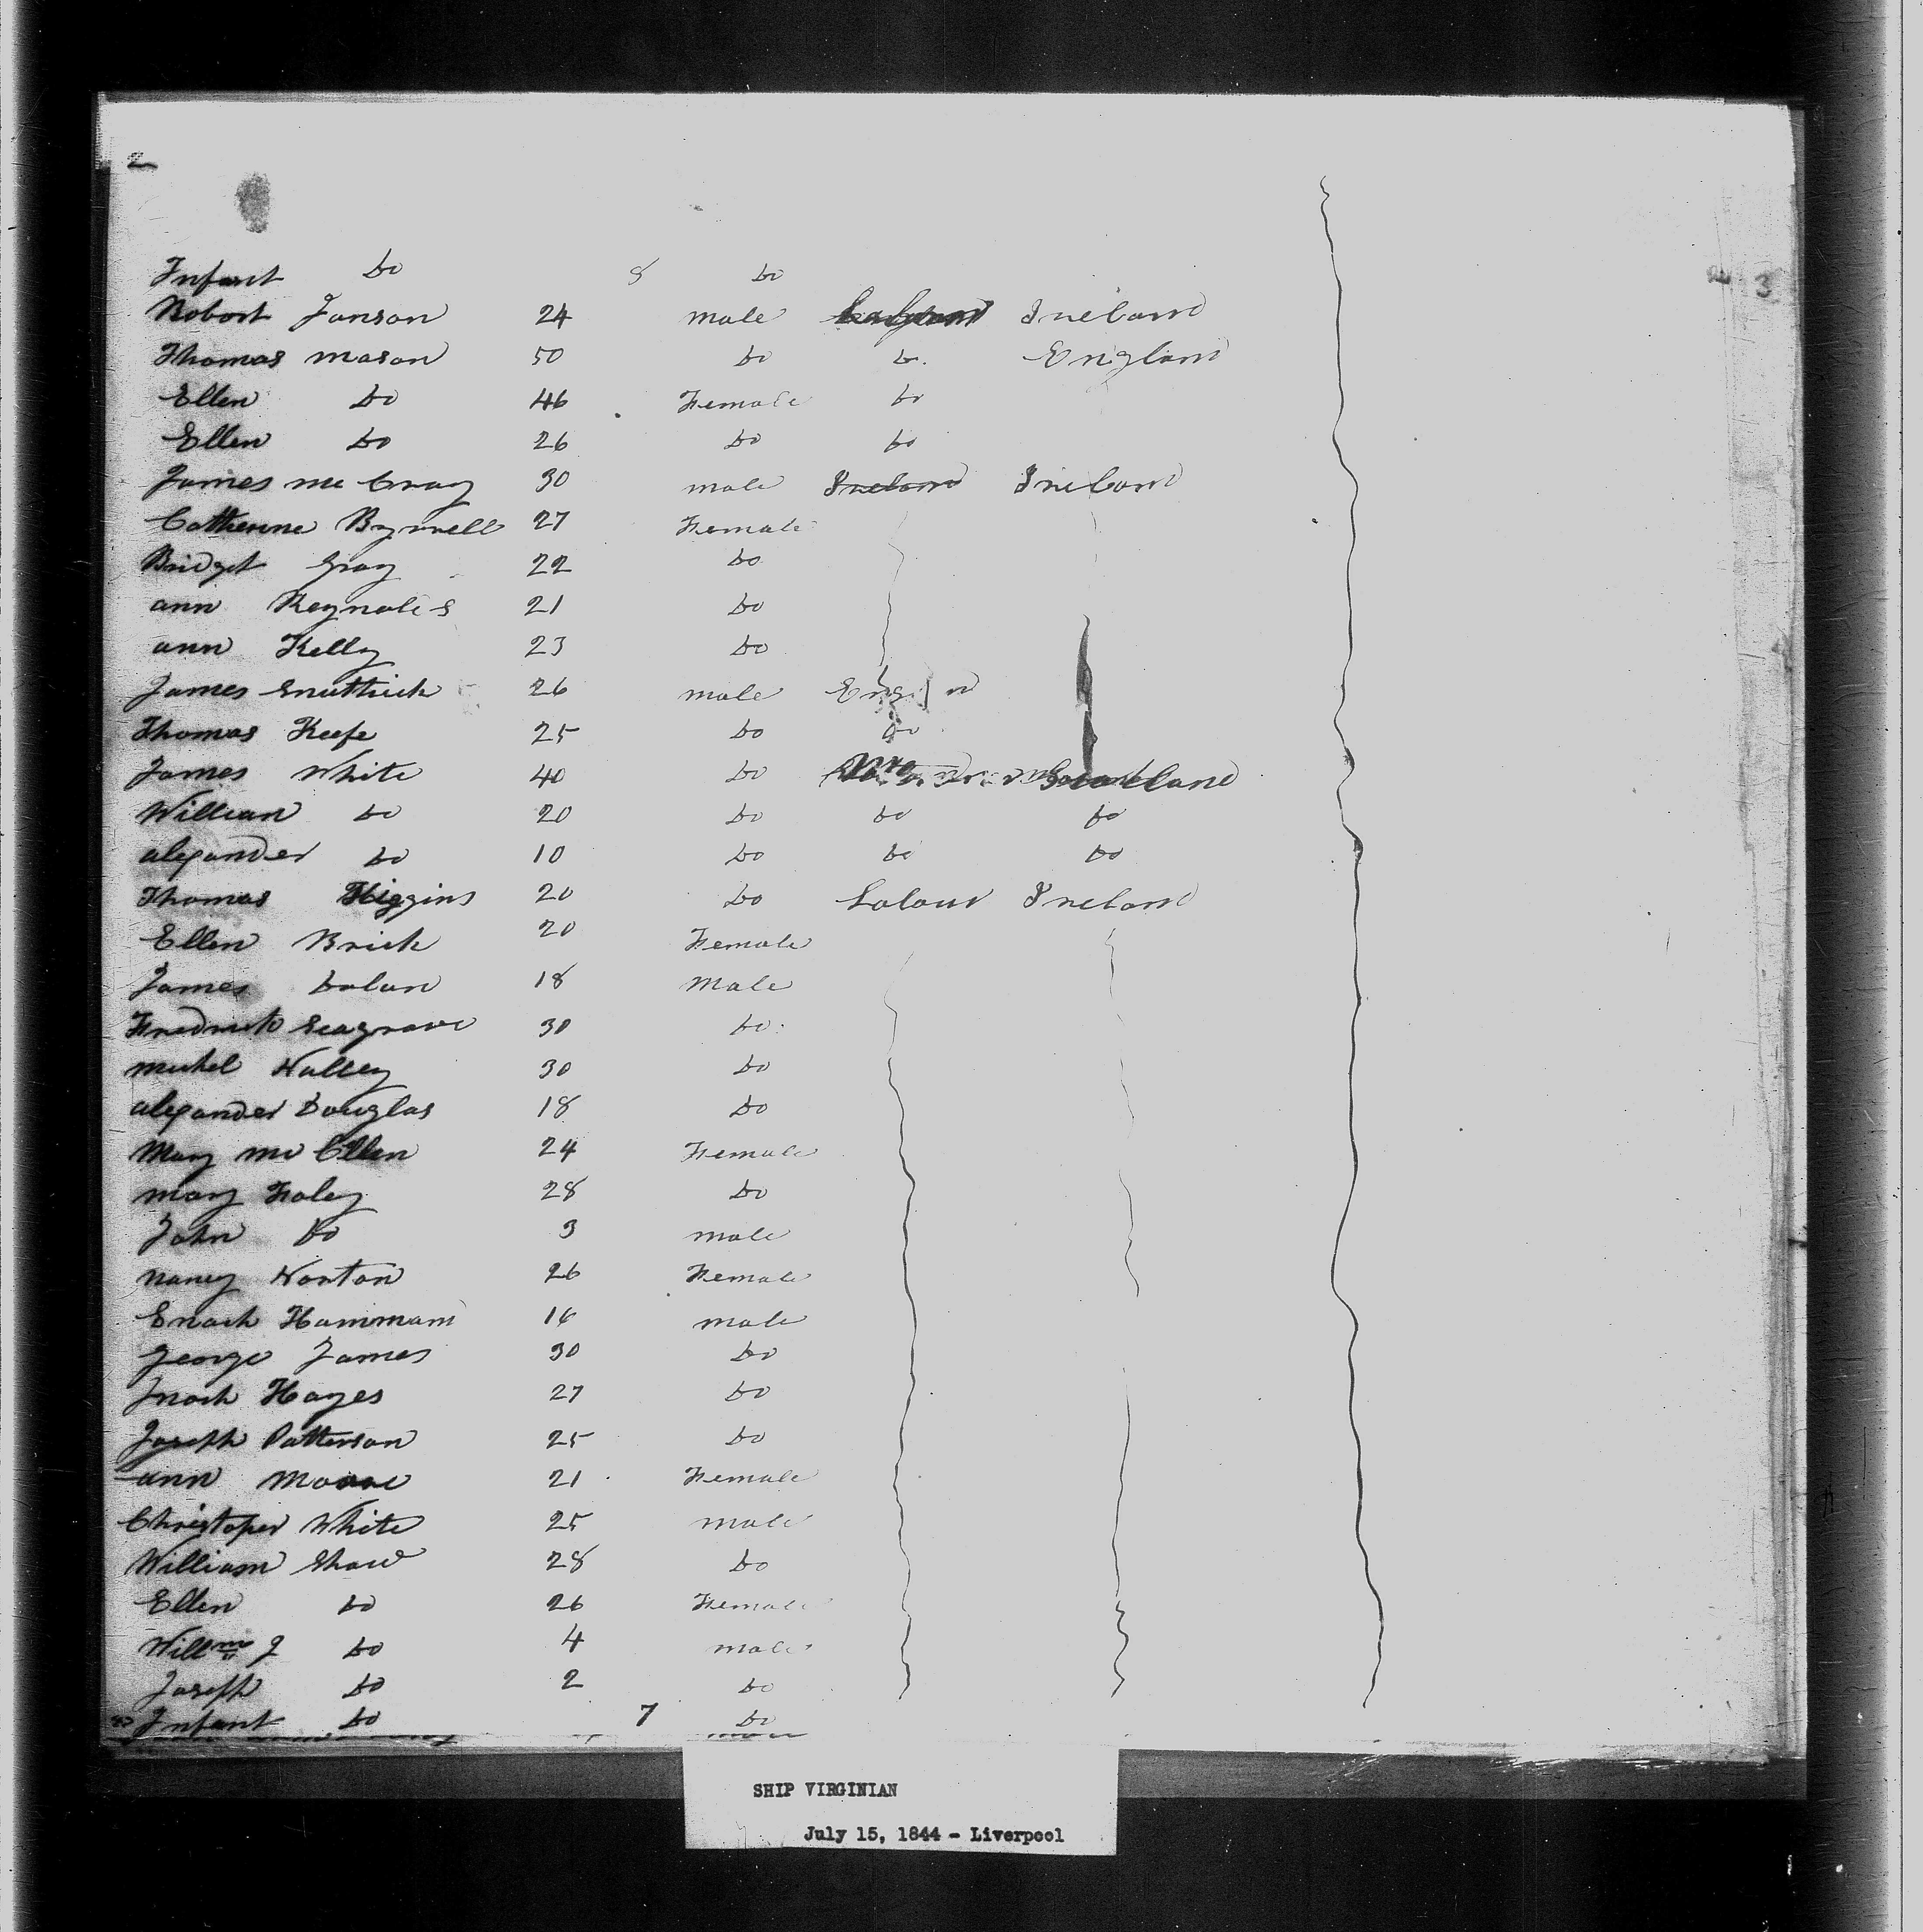 2
3
Infant Do 8 Do
Robort Janson 24 male Ireland
Thomas mason 50 Do Do England
Ellen Do 46 Female Do
Ellen Do 26 Do Do
James mc Cray 30 male Ireland Ireland
Catherine 27 Female
Bridget Gray 22 Do
ann Reynolds 21 Do
ann Kelly 23 Do
James 26 male
Thomas Keefe 25 Do Do
James White 40 Do
William Do 20 Do Do Do
alexander Do 10 Do Do Do
Thomas Higgins 20 Do Labour Ireland
Ellen Brick 20 Female
James Dolan 18 Male
Fredrick Seagrave 30 Do
30 Do
alexander Douglas 18 Do
Mary mc Ellen 24 Female
mary Foley 28 Do
John Do 3 male
nancy Norton 26 Female
Enoch Hammam 16 male
George James 30 Do
Hayes 27 Do
Joseph Patterson 25 Do
ann Moore 21 Female
Christoper White 25 male
William Shaw 28 Do
Ellen Do 26 Female
Willm J Do 4 male
Joseph Do 2 Do
Infant Do 7 Do
SHIP VIRGINIAN
July 15, 1844 - Liverpool